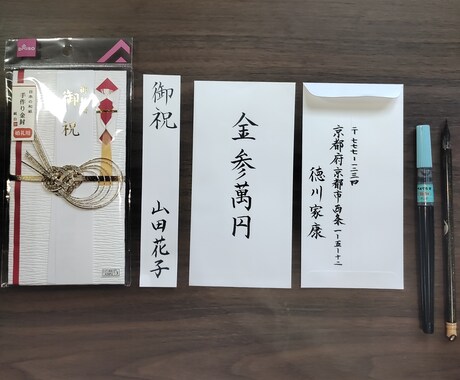 DAISO
手作り金封
婚礼用
御祝
御祝
山田花子
金参萬円
〒七七七-一二三四
京都府京都市西条一-五-十二
徳川家康